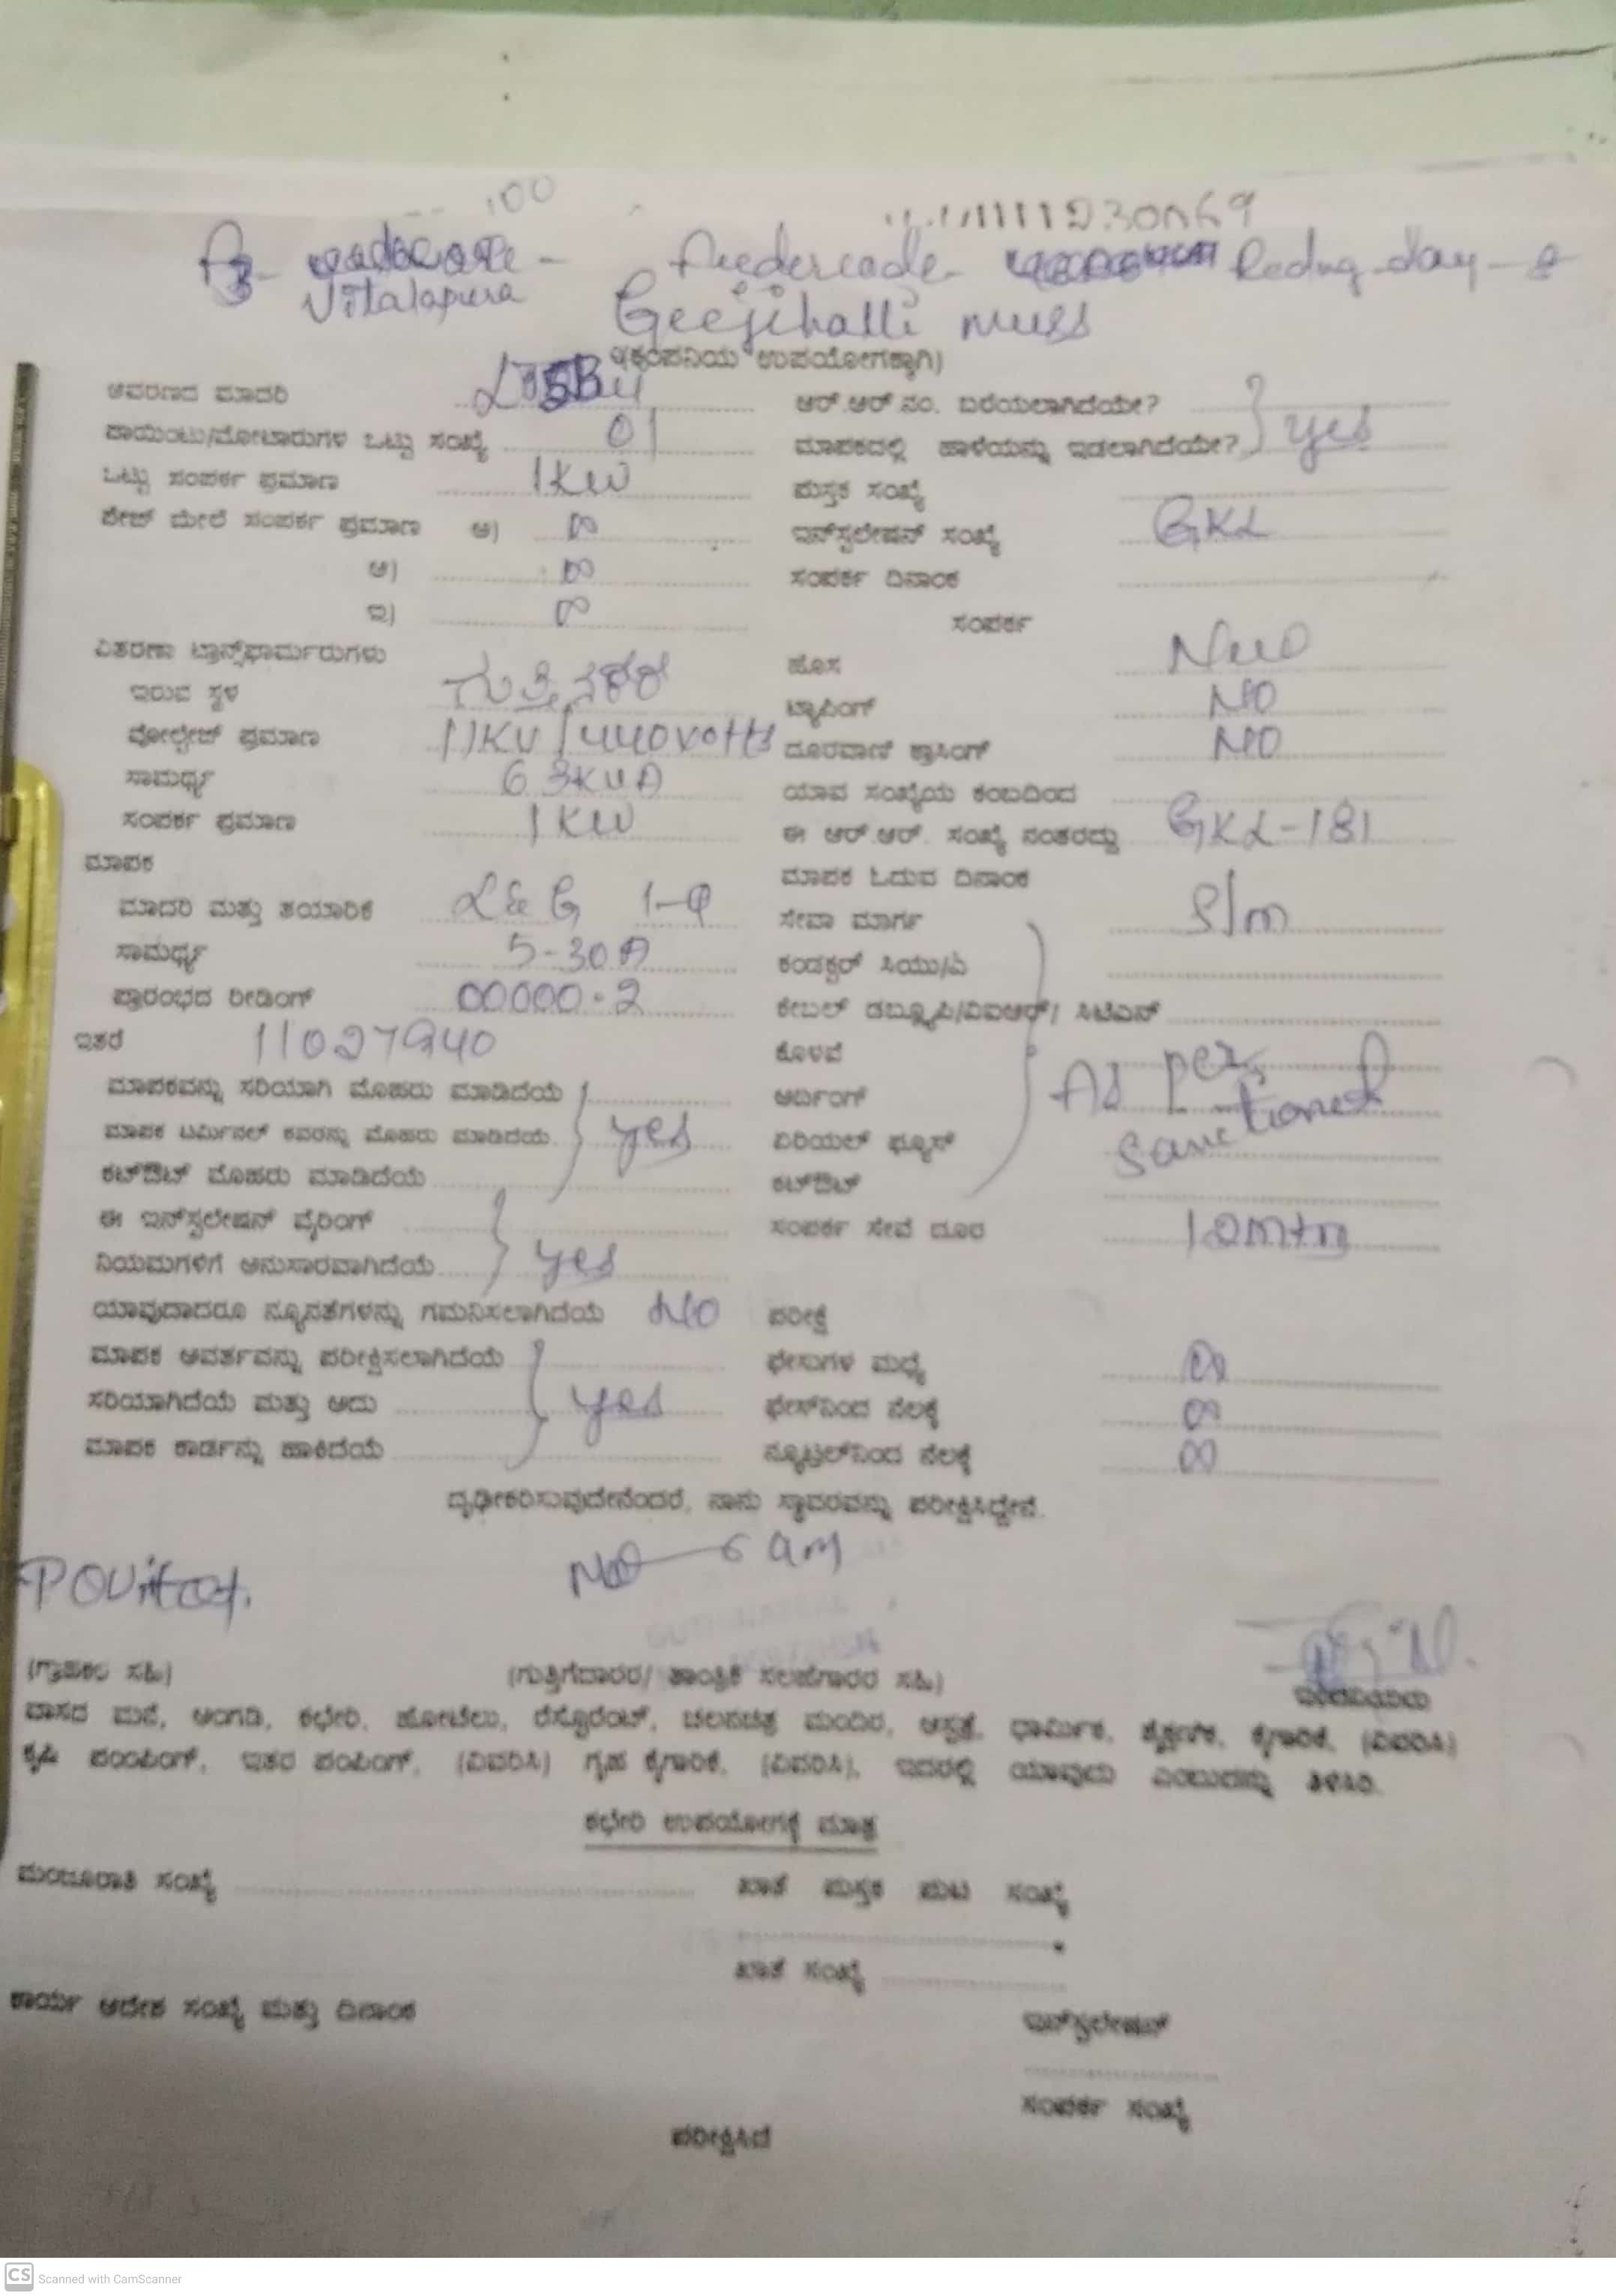 100
Feedercode - Reding day - 8
Vitalapura
Geejihalli muss
(ಕಂಪನಿಯ ಉಪಯೋಗಕ್ಕಾಗಿ)
ಆವರಣದ ಮಾದರಿ
ಆರ್.ಆರ್.ನಂ. ಬರೆಯಲಾಗಿದೆಯೇ?
ಪಾಯಿಂಟು/ಮೋಟಾರುಗಳ ಒಟ್ಟು ಸಂಖ್ಯೆ 01
ಮಾಪಕದಲ್ಲಿ ಹಾಳೆಯನ್ನು ಇಡಲಾಗಿದೆಯೇ? yes
ಒಟ್ಟು ಸಂಪರ್ಕ ಪ್ರಮಾಣ 1KW
ಪುಸ್ತಕ ಸಂಖ್ಯೆ
ಪೇಜ್ ಮೇಲೆ ಸಂಪರ್ಕ ಪ್ರಮಾಣ ಅ)
ಇನ್‌ಸ್ಟಲೇಷನ್ ಸಂಖ್ಯೆ GKL
ಆ)
ಸಂಪರ್ಕ ದಿನಾಂಕ
ಇ)
ಸಂಪರ್ಕ
ವಿತರಣಾ ಟ್ರಾನ್ಸ್‌ಫಾರ್ಮರುಗಳು
ಹೊಸ
ಇರುವ ಸ್ಥಳ
ಟ್ಯಾಪಿಂಗ್ NO
ವೋಲ್ಟೇಜ್ ಪ್ರಮಾಣ 11KV/440volts
ದೂರವಾಣಿ ಕ್ರಾಸಿಂಗ್ NO
ಸಾಮರ್ಥ್ಯ 63KVA
ಯಾವ ಸಂಖ್ಯೆಯ ಕಂಬದಿಂದ
ಸಂಪರ್ಕ ಪ್ರಮಾಣ 1KW
ಈ ಆರ್.ಆರ್. ಸಂಖ್ಯೆ ನಂತರದ್ದು GKL-181
ಮಾಪಕ
ಮಾಪಕ ಓದುವ ದಿನಾಂಕ
ಮಾದರಿ ಮತ್ತು ತಯಾರಿಕೆ L&G 1-φ
ಸೇವಾ ಮಾರ್ಗ S/m
ಸಾಮರ್ಥ್ಯ 5-30A
ಕಂಡಕ್ಟರ್ ಸಿಯು/ಎ
ಪ್ರಾರಂಭದ ರೀಡಿಂಗ್ 00000.2
ಕೇಬಲ್ ಡಬ್ಲ್ಯೂಪಿ/ವಿಐಆರ್/ ಸಿಟಿಎಸ್
ಇತರೆ 11027940
ಕೊಳವೆ
ಮಾಪಕವನ್ನು ಸರಿಯಾಗಿ ಮೊಹರು ಮಾಡಿದೆಯೆ
ಅರ್ಥಿಂಗ್ As per
ಮಾಪಕ ಟರ್ಮಿನಲ್ ಕವರನ್ನು ಮೊಹರು ಮಾಡಿದೆಯೆ yes
ಏರಿಯಲ್ ಫ್ಯೂಸ್ Sanctioned
ಕಟ್‌ಔಟ್ ಮೊಹರು ಮಾಡಿದೆಯೆ
ಕಟ್‌ಔಟ್
ಈ ಇನ್‌ಸ್ಟಲೇಷನ್ ವೈರಿಂಗ್
ಸಂಪರ್ಕ ಸೇವೆ ದೂರ
ನಿಯಮಗಳಿಗೆ ಅನುಸಾರವಾಗಿದೆಯೆ yes
ಯಾವುದಾದರೂ ನ್ಯೂನತೆಗಳನ್ನು ಗಮನಿಸಲಾಗಿದೆಯೆ NO
ಪರೀಕ್ಷೆ
ಮಾಪಕ ಆವರ್ತವನ್ನು ಪರೀಕ್ಷಿಸಲಾಗಿದೆಯೆ
ಫೇಸುಗಳ ಮಧ್ಯೆ
ಸರಿಯಾಗಿದೆಯೆ ಮತ್ತು ಅದು yes
ಫೇಸ್‌ನಿಂದ ನೆಲಕ್ಕೆ
ಮಾಪಕ ಕಾರ್ಡನ್ನು ಹಾಕಿದೆಯೆ
ನ್ಯೂಟ್ರಲ್‌ನಿಂದ ನೆಲಕ್ಕೆ
ದೃಢೀಕರಿಸುವುದೇನೆಂದರೆ, ನಾನು ಸ್ಥಾವರವನ್ನು ಪರೀಕ್ಷಿಸಿದ್ದೇನೆ.
(ಗ್ರಾಹಕರ ಸಹಿ) (ಗುತ್ತಿಗೆದಾರರ/ ತಾಂತ್ರಿಕ ಸಲಹೆಗಾರರ ಸಹಿ)
ವಾಸದ ಮನೆ, ಅಂಗಡಿ, ಕಛೇರಿ, ಹೋಟೆಲು, ರೆಸ್ಟೊರೆಂಟ್, ಚಲನಚಿತ್ರ ಮಂದಿರ, ಆಸ್ಪತ್ರೆ, ಧಾರ್ಮಿಕ, ಶೈಕ್ಷಣಿಕ, ಕೈಗಾರಿಕೆ, (ವಿವರಿಸಿ)
ಕೃಷಿ ಪಂಪಿಂಗ್, ಇತರ ಪಂಪಿಂಗ್, (ವಿವರಿಸಿ) ಗೃಹ ಕೈಗಾರಿಕೆ, (ವಿವರಿಸಿ), ಇದರಲ್ಲಿ ಯಾವುದು ಎಂಬುದನ್ನು ತಿಳಿಸಿರಿ.
ಕಛೇರಿ ಉಪಯೋಗಕ್ಕೆ ಮಾತ್ರ
ಮಂಜೂರಾತಿ ಸಂಖ್ಯೆ
ಖಾತೆ ಪುಸ್ತಕ ಪುಟ ಸಂಖ್ಯೆ
ಖಾತೆ ಸಂಖ್ಯೆ
ಕಾರ್ಯ ಆದೇಶ ಸಂಖ್ಯೆ ಮತ್ತು ದಿನಾಂಕ
ಇನ್‌ಸ್ಟಲೇಷನ್
ಸಂಪರ್ಕ ಸಂಖ್ಯೆ
ಪರೀಕ್ಷಿಸಿದೆ
CS Scanned with CamScanner